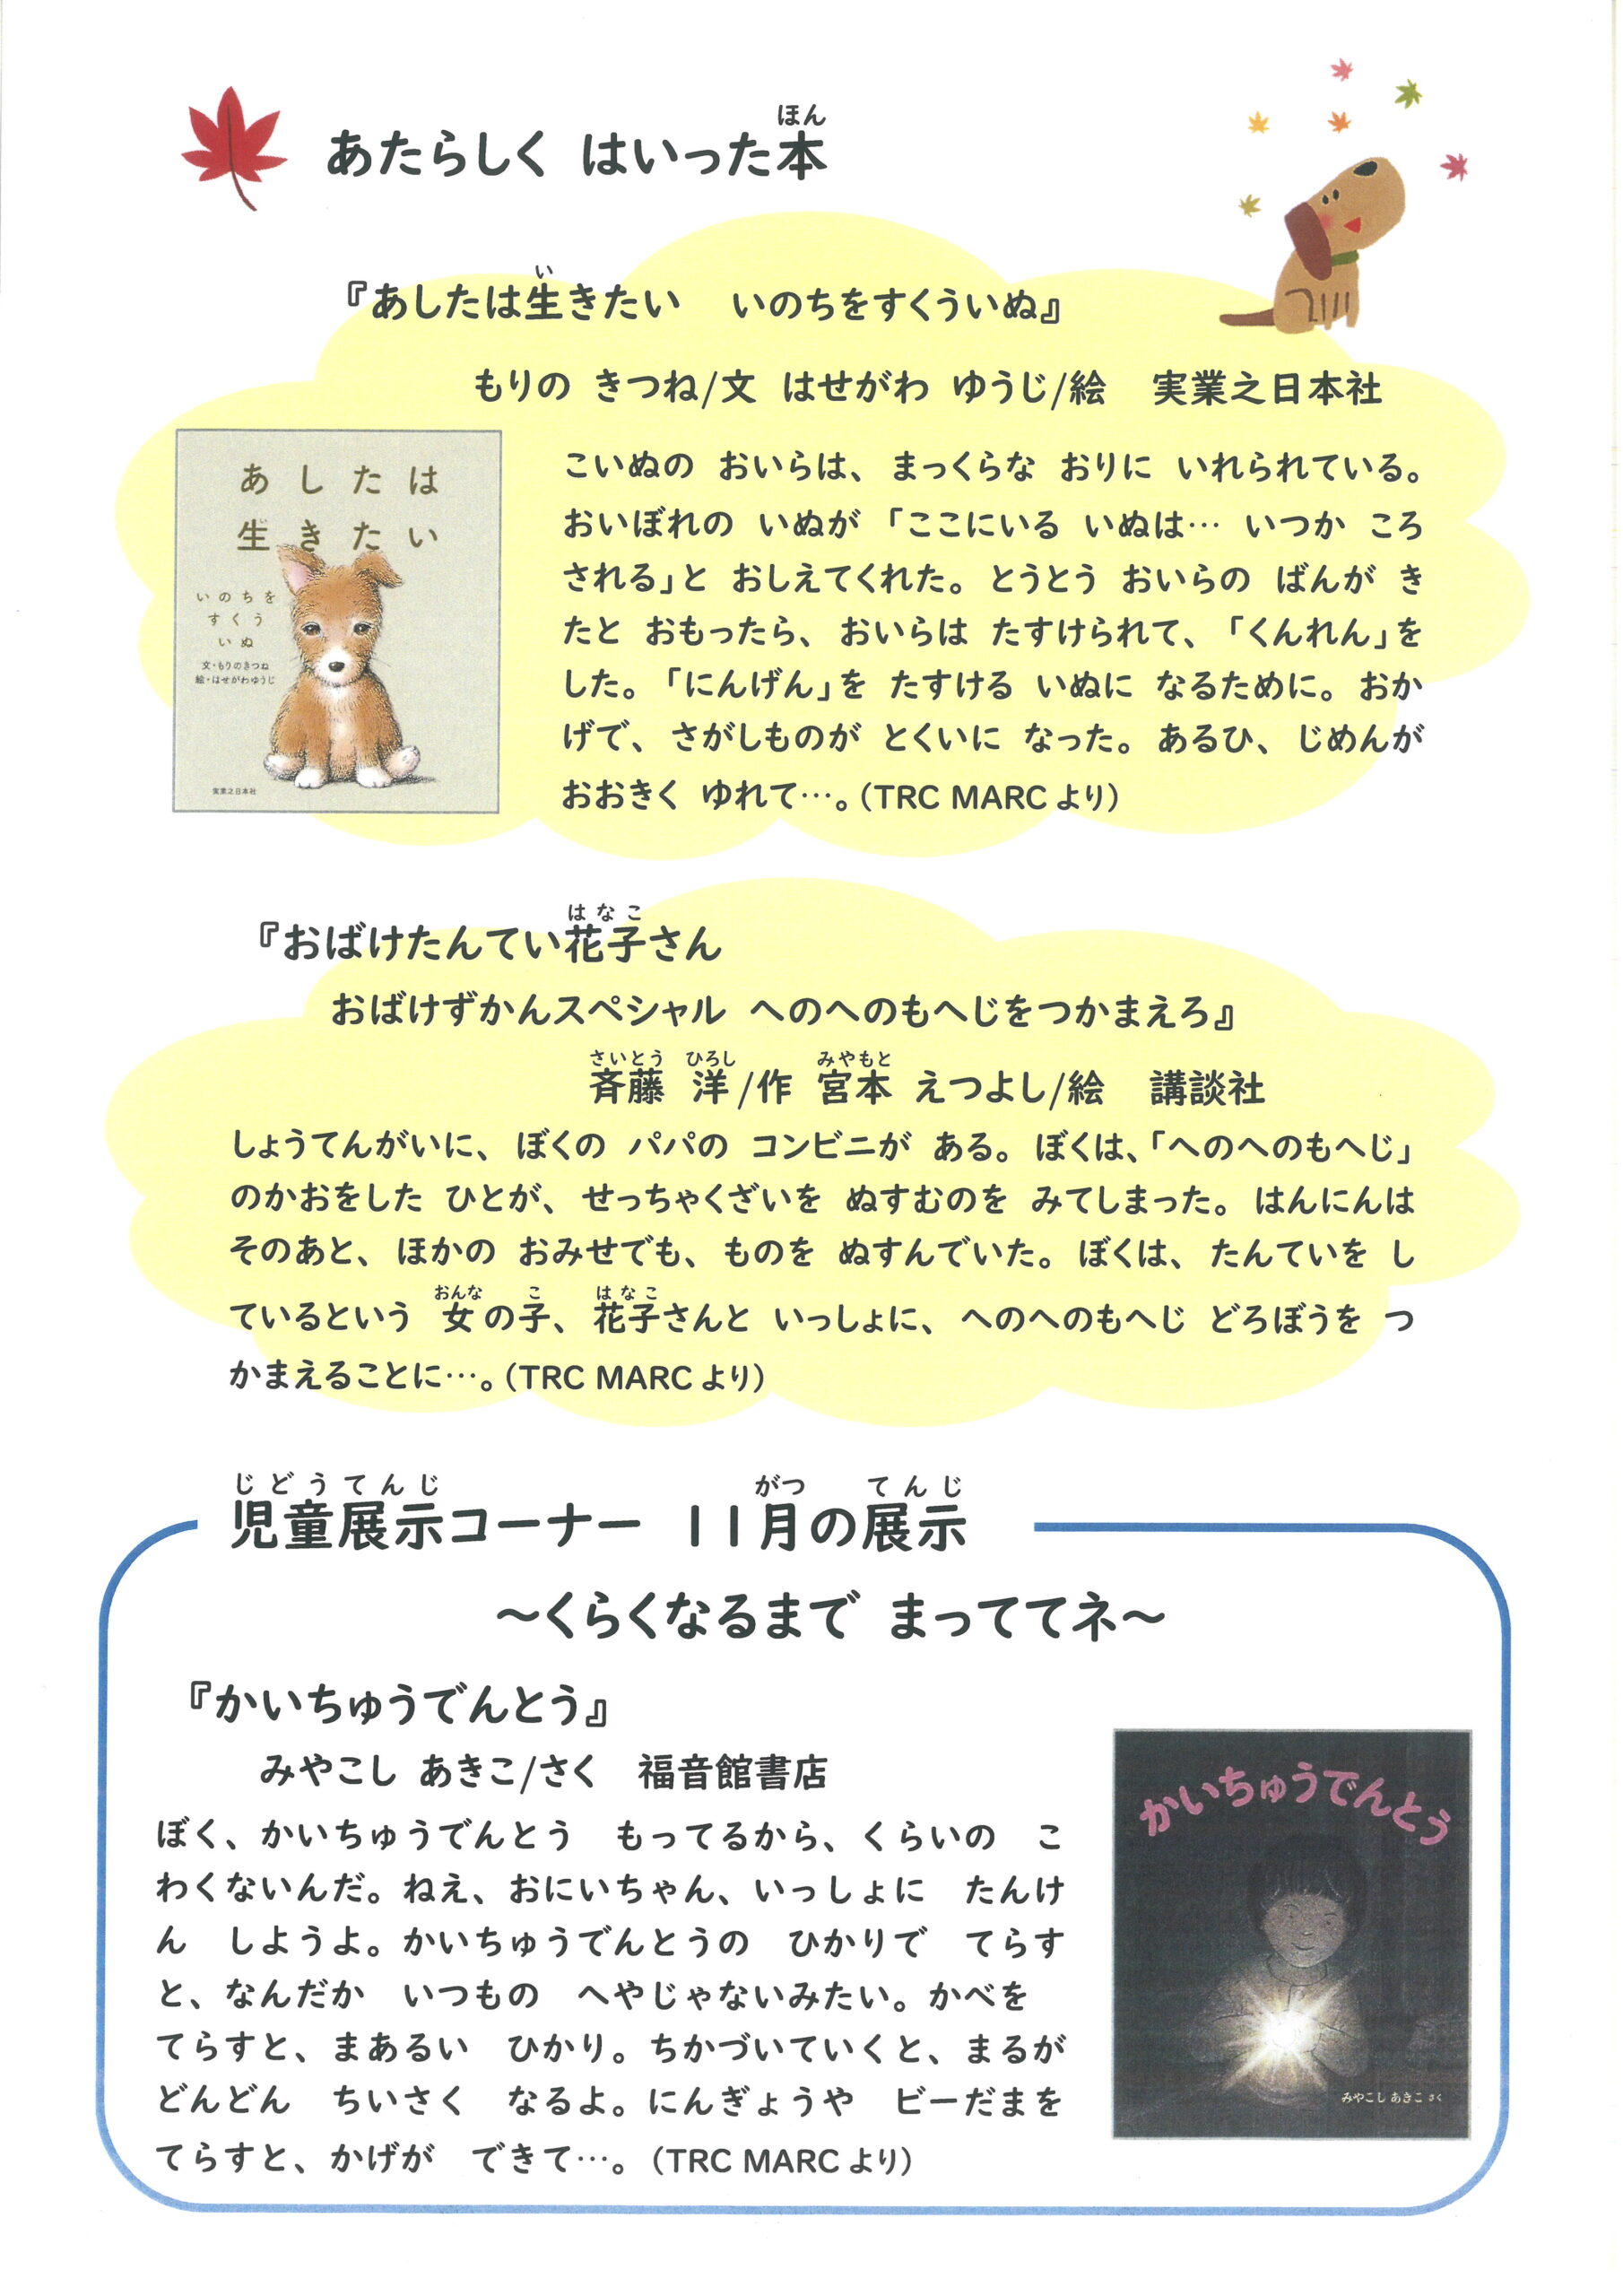 あたらしく はいった本
ほん
『あしたは生きたい　いのちをすくういぬ』
い
もりの きつね/文 はせがわ ゆうじ/絵　実業之日本社
あしたは
生きたい
いのちを
すくう
いぬ
文・もりのきつね
絵・はせがわゆうじ
実業之日本社
こいぬの おいらは、まっくらな おりに いれられている。
おいぼれの いぬが 「ここにいる いぬは… いつか ころ
される」と おしえてくれた。とうとう おいらの ばんが き
たと おもったら、おいらは たすけられて、「くんれん」を
した。「にんげん」を たすける いぬに なるために。おか
げで、さがしものが とくいに なった。あるひ、じめんが
おおきく ゆれて…。（TRC MARC より）
『おばけたんてい花子さん
はなこ
おばけずかんスペシャル へのへのもへじをつかまえろ』
さいとう ひろし みやもと
斉藤 洋/作 宮本 えつよし/絵　講談社
しょうてんがいに、ぼくの パパの コンビニが ある。ぼくは、「へのへのもへじ」
のかおをした ひとが、せっちゃくざいを ぬすむのを みてしまった。はんにんは
そのあと、ほかの おみせでも、ものを ぬすんでいた。ぼくは、たんていを し
おんな こ はなこ
ているという 女の子、花子さんと いっしょに、へのへのもへじ どろぼうを つ
かまえることに…。（TRC MARC より）
じどうてんじ がつ てんじ
児童展示コーナー 11月の展示
～くらくなるまで まっててネ～
『かいちゅうでんとう』
みやこし あきこ/さく　福音館書店
ぼく、かいちゅうでんとう　もってるから、くらいの　こ
わくないんだ。ねえ、おにいちゃん、いっしょに　たんけ
ん　しようよ。かいちゅうでんとうの　ひかりで　てらす
と、なんだか　いつもの　へやじゃないみたい。かべを
てらすと、まあるい　ひかり。ちかづいていくと、まるが
どんどん　ちいさく　なるよ。にんぎょうや　ビーだまを
てらすと、かげが　できて…。（TRC MARC より）
かいちゅうでんとう
みやこし あきこ さく